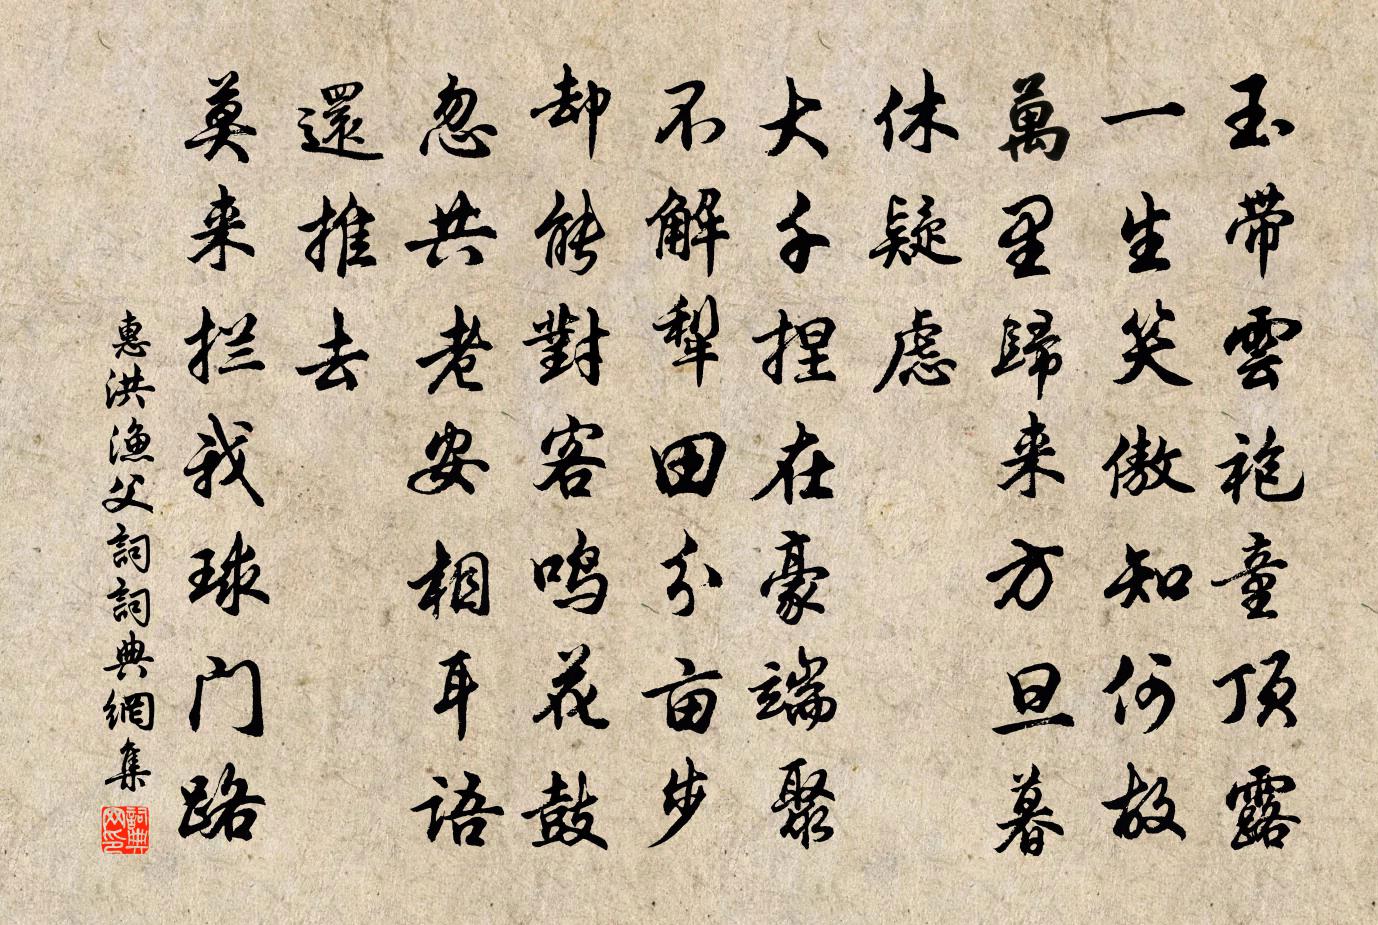 玉帶雲袍童頂露
一生笑傲知何故
萬里歸来方旦暮
休疑慮
大千捏在豪端聚
不解犁田分亩步
却能對客鸣花鼓
忽共老安相耳语
還推去
莫来拦我球门路
惠洪漁父詞詞典網集
詞典网印